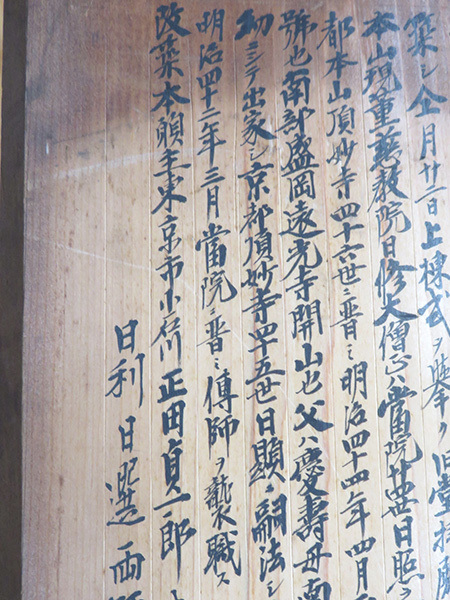 築シ仝月廿二日上棟式ヲ挙ク旧堂
本山現董慈教院日修大僧正ハ當院廿四世日照
都本山頂妙寺四十六世ニ晋ミ明治四十四年四月
號也南部盛岡遠光寺開山也父ハ慶壽母南
幼ニシテ出家シ京都頂妙寺四十五世日顕ニ嗣法シ
明治四十二年三月當院ニ晋ミ傳師ヲ襲職ス
改築本願主東京市小石川正田貞一郎
日利日選両